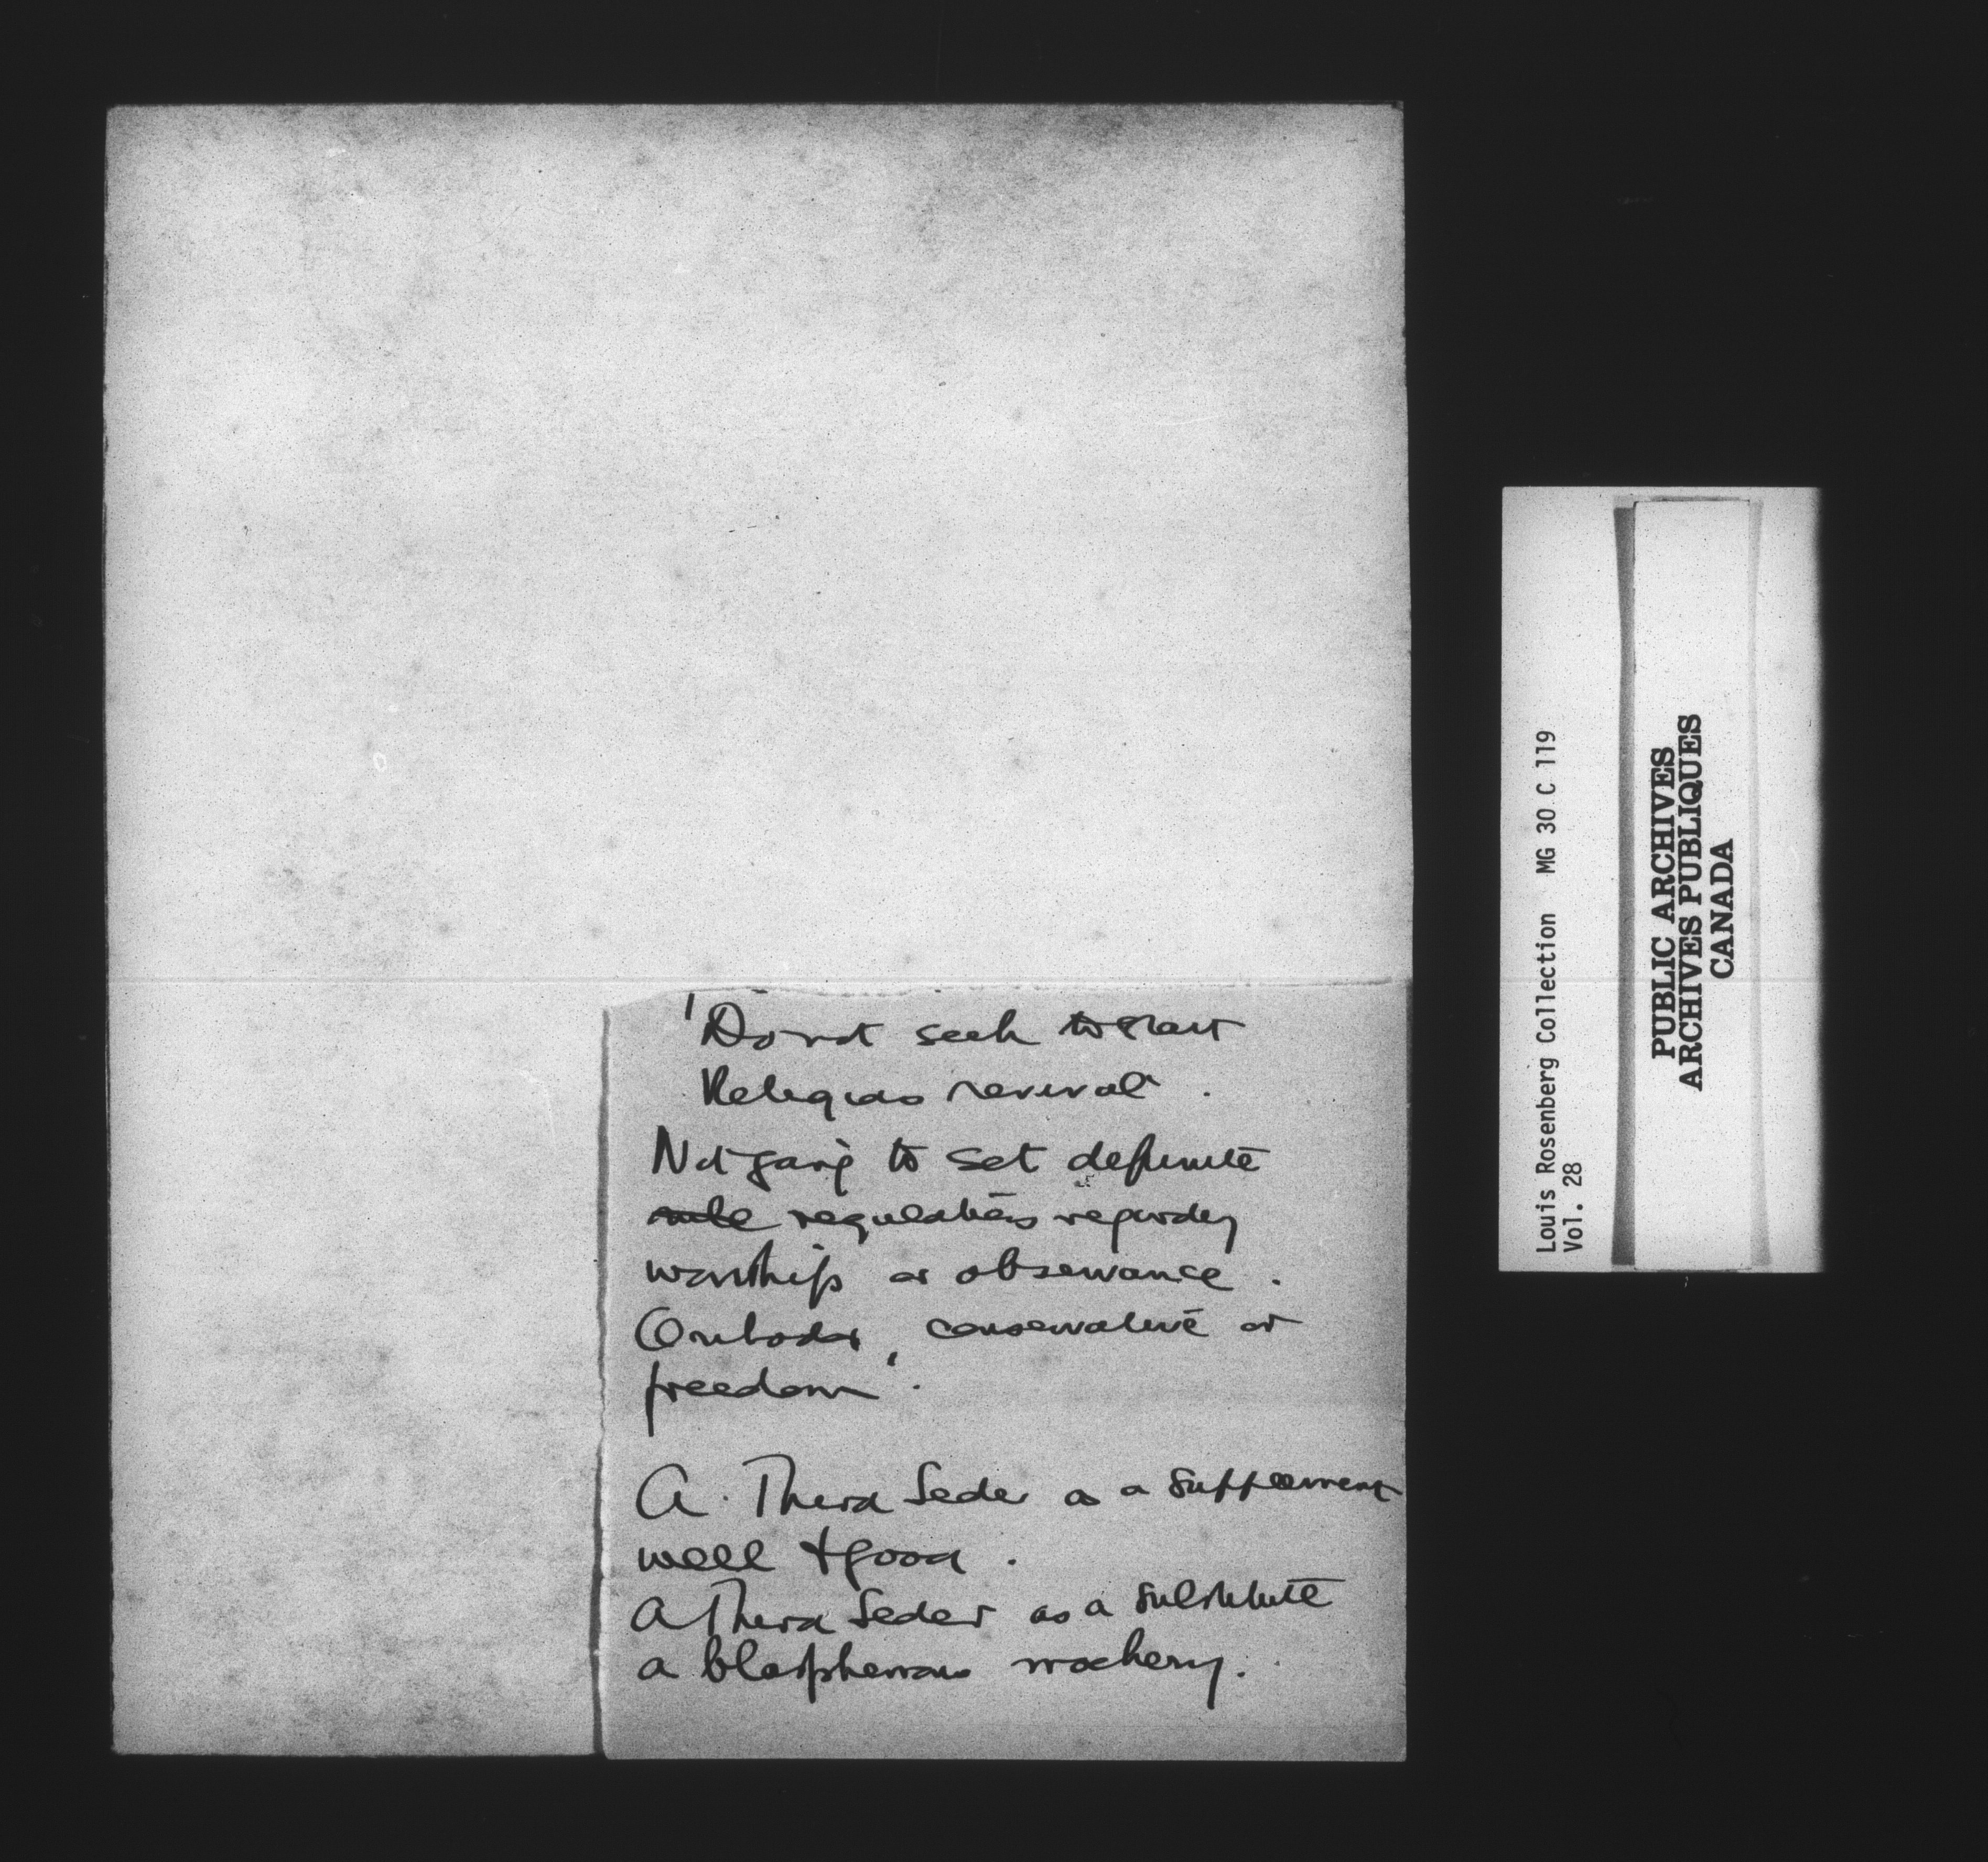 'Do not seek to start
Religious revival'.
Not going to set definite
rule regulations regarding
worship or observance.
Orthodox, conservative or
freedom'.
A Third Seder as a supplement
well + good.
A Third Seder as a substitute
a blasphemous mockery.
Louis Rosenberg Collection MG 30 C 119
Vol. 28
PUBLIC ARCHIVES
ARCHIVES PUBLIQUES
CANADA